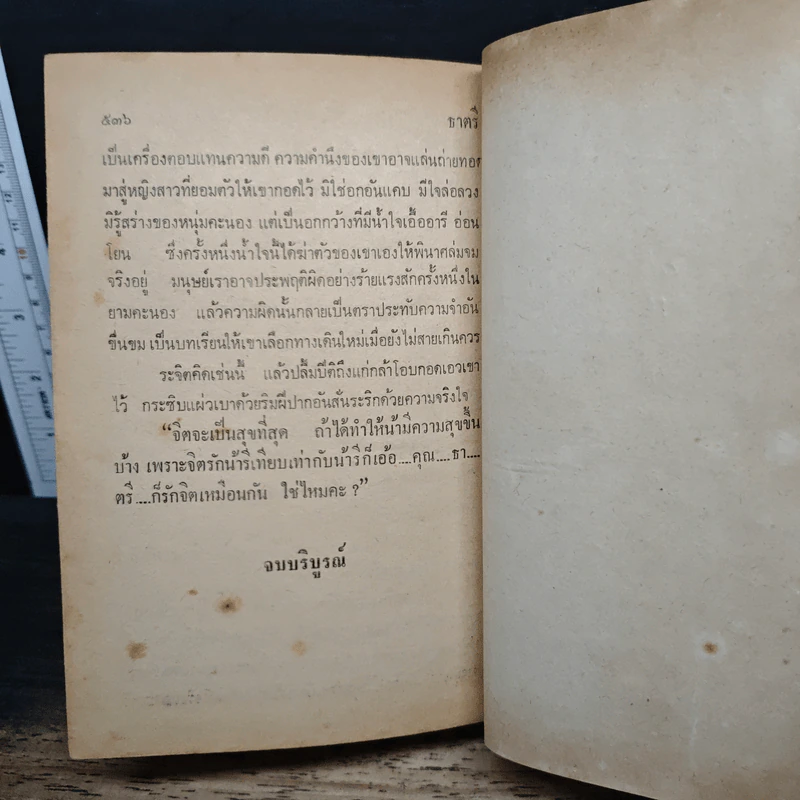 ๕๓๖ ธาตรี
เป็นเครื่องตอบแทนความดี ความคำนึงของเขาอาจแล่นถ่ายทอด
มาสู่หญิงสาวที่ยอมตัวให้เขากอดไว้ มิใช่อกอันแคบ มีใจล่อลวง
มิรู้สร่างของหนุ่มคะนอง แต่เป็นอกกว้างที่มีน้ำใจเอื้ออารี อ่อน
โยน ซึ่งครั้งหนึ่งน้ำใจนี้ได้ฆ่าตัวของเขาเองให้พินาศล่มจม
จริงอยู่ มนุษย์เราอาจประพฤติผิดอย่างร้ายแรงสักครั้งหนึ่งใน
ยามคะนอง แล้วความผิดนั้นกลายเป็นตราประทับความจำอัน
ขื่นขม เป็นบทเรียนให้เขาเลือกทางเดินใหม่เมื่อยังไม่สายเกินควร
ระจิตคิดเช่นนี้ แล้วปลื้มปีติถึงแก่กล้าโอบกอดเอวเขา
ไว้ กระซิบแผ่วเบาด้วยริมฝีปากอันสั่นระริกด้วยความจริงใจ
“จิตจะเป็นสุขที่สุด ถ้าได้ทำให้น้ามีความสุขขึ้น
บ้าง เพราะจิตรักน้ารีเทียบเท่ากับน้ารีก็เอ้อ....คุณ....ธา....
ตรี....ก็รักจิตเหมือนกัน ใช่ไหมคะ ?”
จบบริบูรณ์